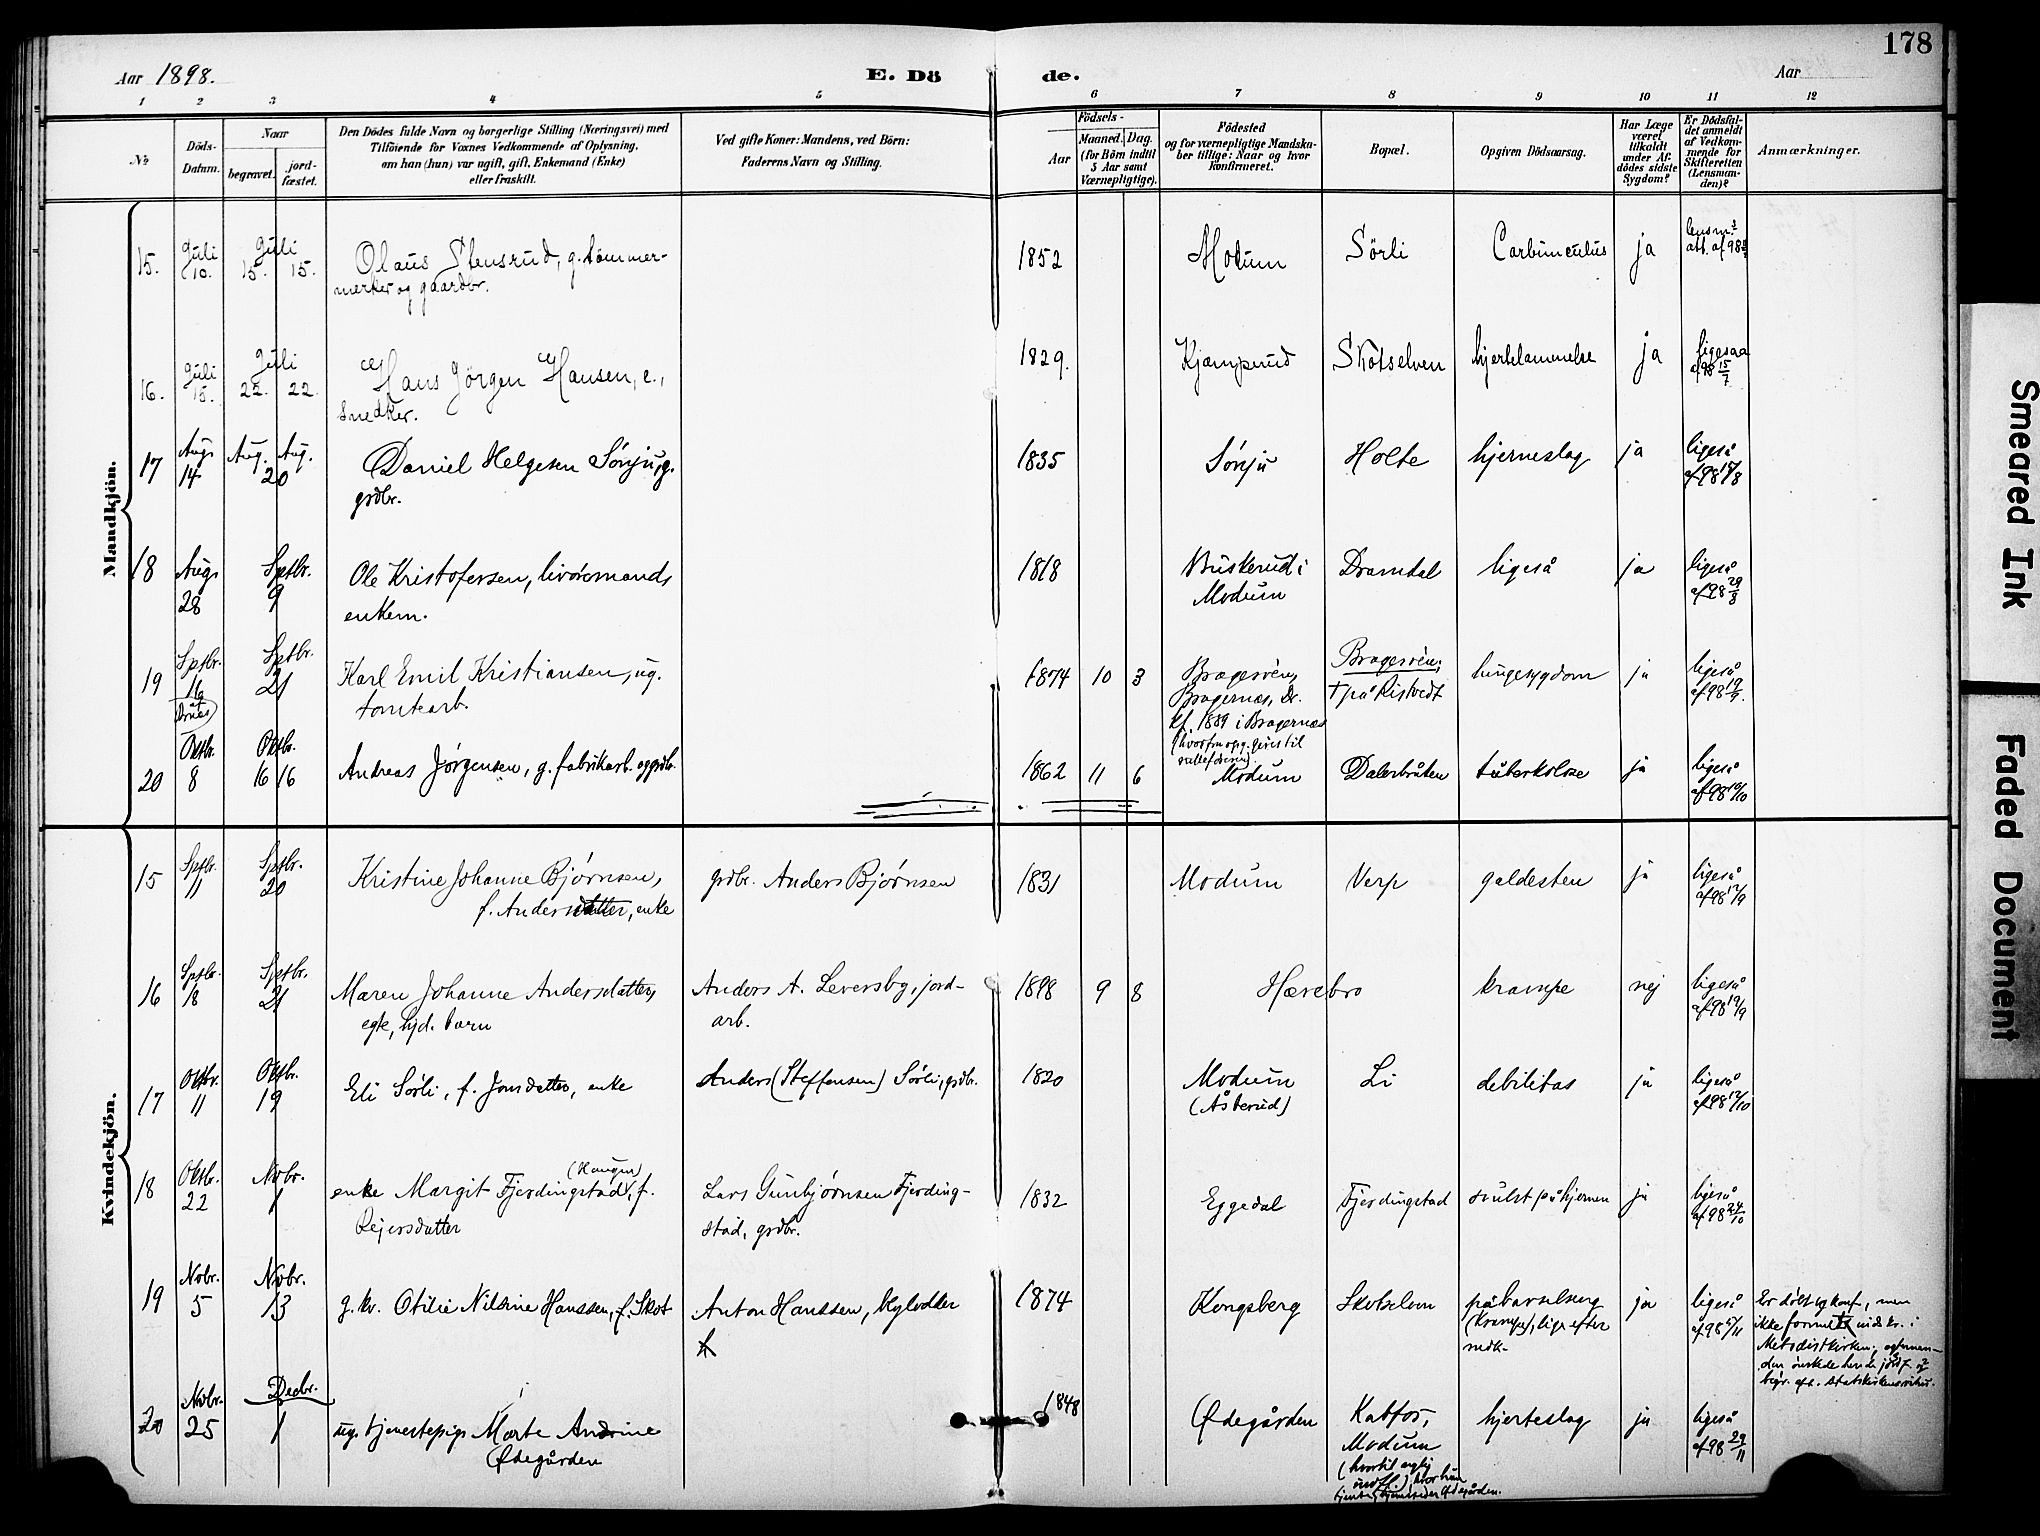 178
Aar 1898.
E. Dö de.
Aar
1 2 3 4 5 6 7 8 9 10 11 12
No
Döds-
Datum.
Naar
begravet.
jord-
fæstet.
Den Dödes fulde Navn og borgerlige Stilling (Næringsvei) med
Tilföiende for Voxnes Vedkommende af Oplysning,
om han (hun) var ugift, gift, Enkemand (Enke)
eller fraskilt.
Ved gifte Koner: Mandens, ved Börn:
Faderens Navn og Stilling.
Födsels-
Aar
Maaned. Dag.
(for Börn indtil
5 Aar samt
Værnepligtige).
Födested
og for værnepligtige Mandska-
ber tillige: Naar og hvor
konfirmeret.
Bopæl.
Opgiven Dödsaarsag.
Har Læge
været
tilkaldt
under Af-
dödes sidste
Sygdom?
Er Dödsfal-
det anmeldt
af Vedkom-
mende for
Skifteretten
(Lensman-
den)?
Anmærkninger.
Mandkjön.
15. Juli 10. Juli 15. 15. Olaus Stensrud, g. tömmer-
merker og gaardbr.
1852 Modum Sörli Carbunculus ja lensm.s
att. af 98
16. Juli 15. Juli 22. 22. Hans Jörgen Hansen, e.,
Snedker.
1829. Kjæmperud Skotselven hjertelammelse ja ligesaa
af 98 15/7
17 Aug. 14 Aug. Aug. 20 Daniel Helgesen Sönju, g.
grdbr.
1835 Sönju Holte hjerneslag ja ligeså
af 98 15/8
18 Aug. 28 Sptbr. 9 Ole Kristofersen, livöresmand,
enkem.
1818 Buskerud i
Modum
Dramdal ligeså ja ligeså
af 98 29/8
19 Sptbr. 16 Sptbr. 21 Karl Emil Kristiansen, ug.
tomtearb.
1874 10 3 Bragerøen,
Bragernæs, Dr.
kf. 1889 i Bragernæs
Bragerøen;
† på Ristvedt
lungesygdom ja ligeså
af 98 19/9.
20 Oktbr. 8 Oktbr. 16 16 Andreas Jørgensen, g. fabrikarb. og grdbr.
1862 11 6 Modum Dalerbråten tuberkolose ja ligeså
af 98 10/10
Kvindekjön.
15 Sptbr. 11 Sptbr. 20 Kristine Johanne Bjørnsen,
f. Andersdatter, enke
grdbr. Anders Bjørnsen 1831 Modum Verp galdesten ja ligeså
af 98 12/9
16 Sptbr. 18 Sptbr. 21 Maren Johanne Andersdatter,
egte, hjd. barn
Anders A. Leversby, jord-
arb.
1898 9 8 Hærebro krampe nej ligeså
af 98 19/9
17 Oktbr. 11 Oktbr. 19 Eli Sørli, f. Jonsdatter, enke
Anders (Steffensen) Sørli, grdbr. 1820 Modum
(Åsberud)
Li debilitas ja ligeså
af 98 12/10
18 Oktbr. 22 Novbr. 1 enke Margit Fjerdingstad (Haugen), f.
Rejersdatter
Lars Gunbjørnsen Fjerding-
stad, grdbr.
1832 Eggedal Fjerdingstad svulst på hjernen ja ligeså
af 98 24/10
19 Novbr. 5 Novbr. 13 g. kv. Otilie Nilsine Hanssen, f. Skot
Anton Hanssen, 1874 Kongsberg Skotselven på barselseng
(krampe), lige efter
nedk.
ja ligeså
af 98 5/11
Er døbt og konf., men
ikke formelt indskr. i
Metodistkirken;
den ønskede hende jordf. og
begr. eft.
20 Novbr. 25 Decbr. 1 ug. tjenestepige Marte Andrine
Ødegården
1848 Ødegården Katfos,
Modum
hvor hun
hjerteslag ja ligeså
af 98 29/11
Smeared Ink
Faded Document